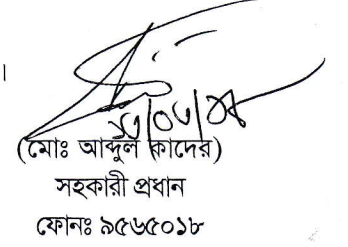 ।
(মোঃ আব্দুল কাদের)
সহকারী প্রধান
ফোনঃ ৯৫৬৫০১৮